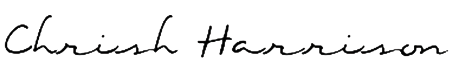 Chrish Harrison